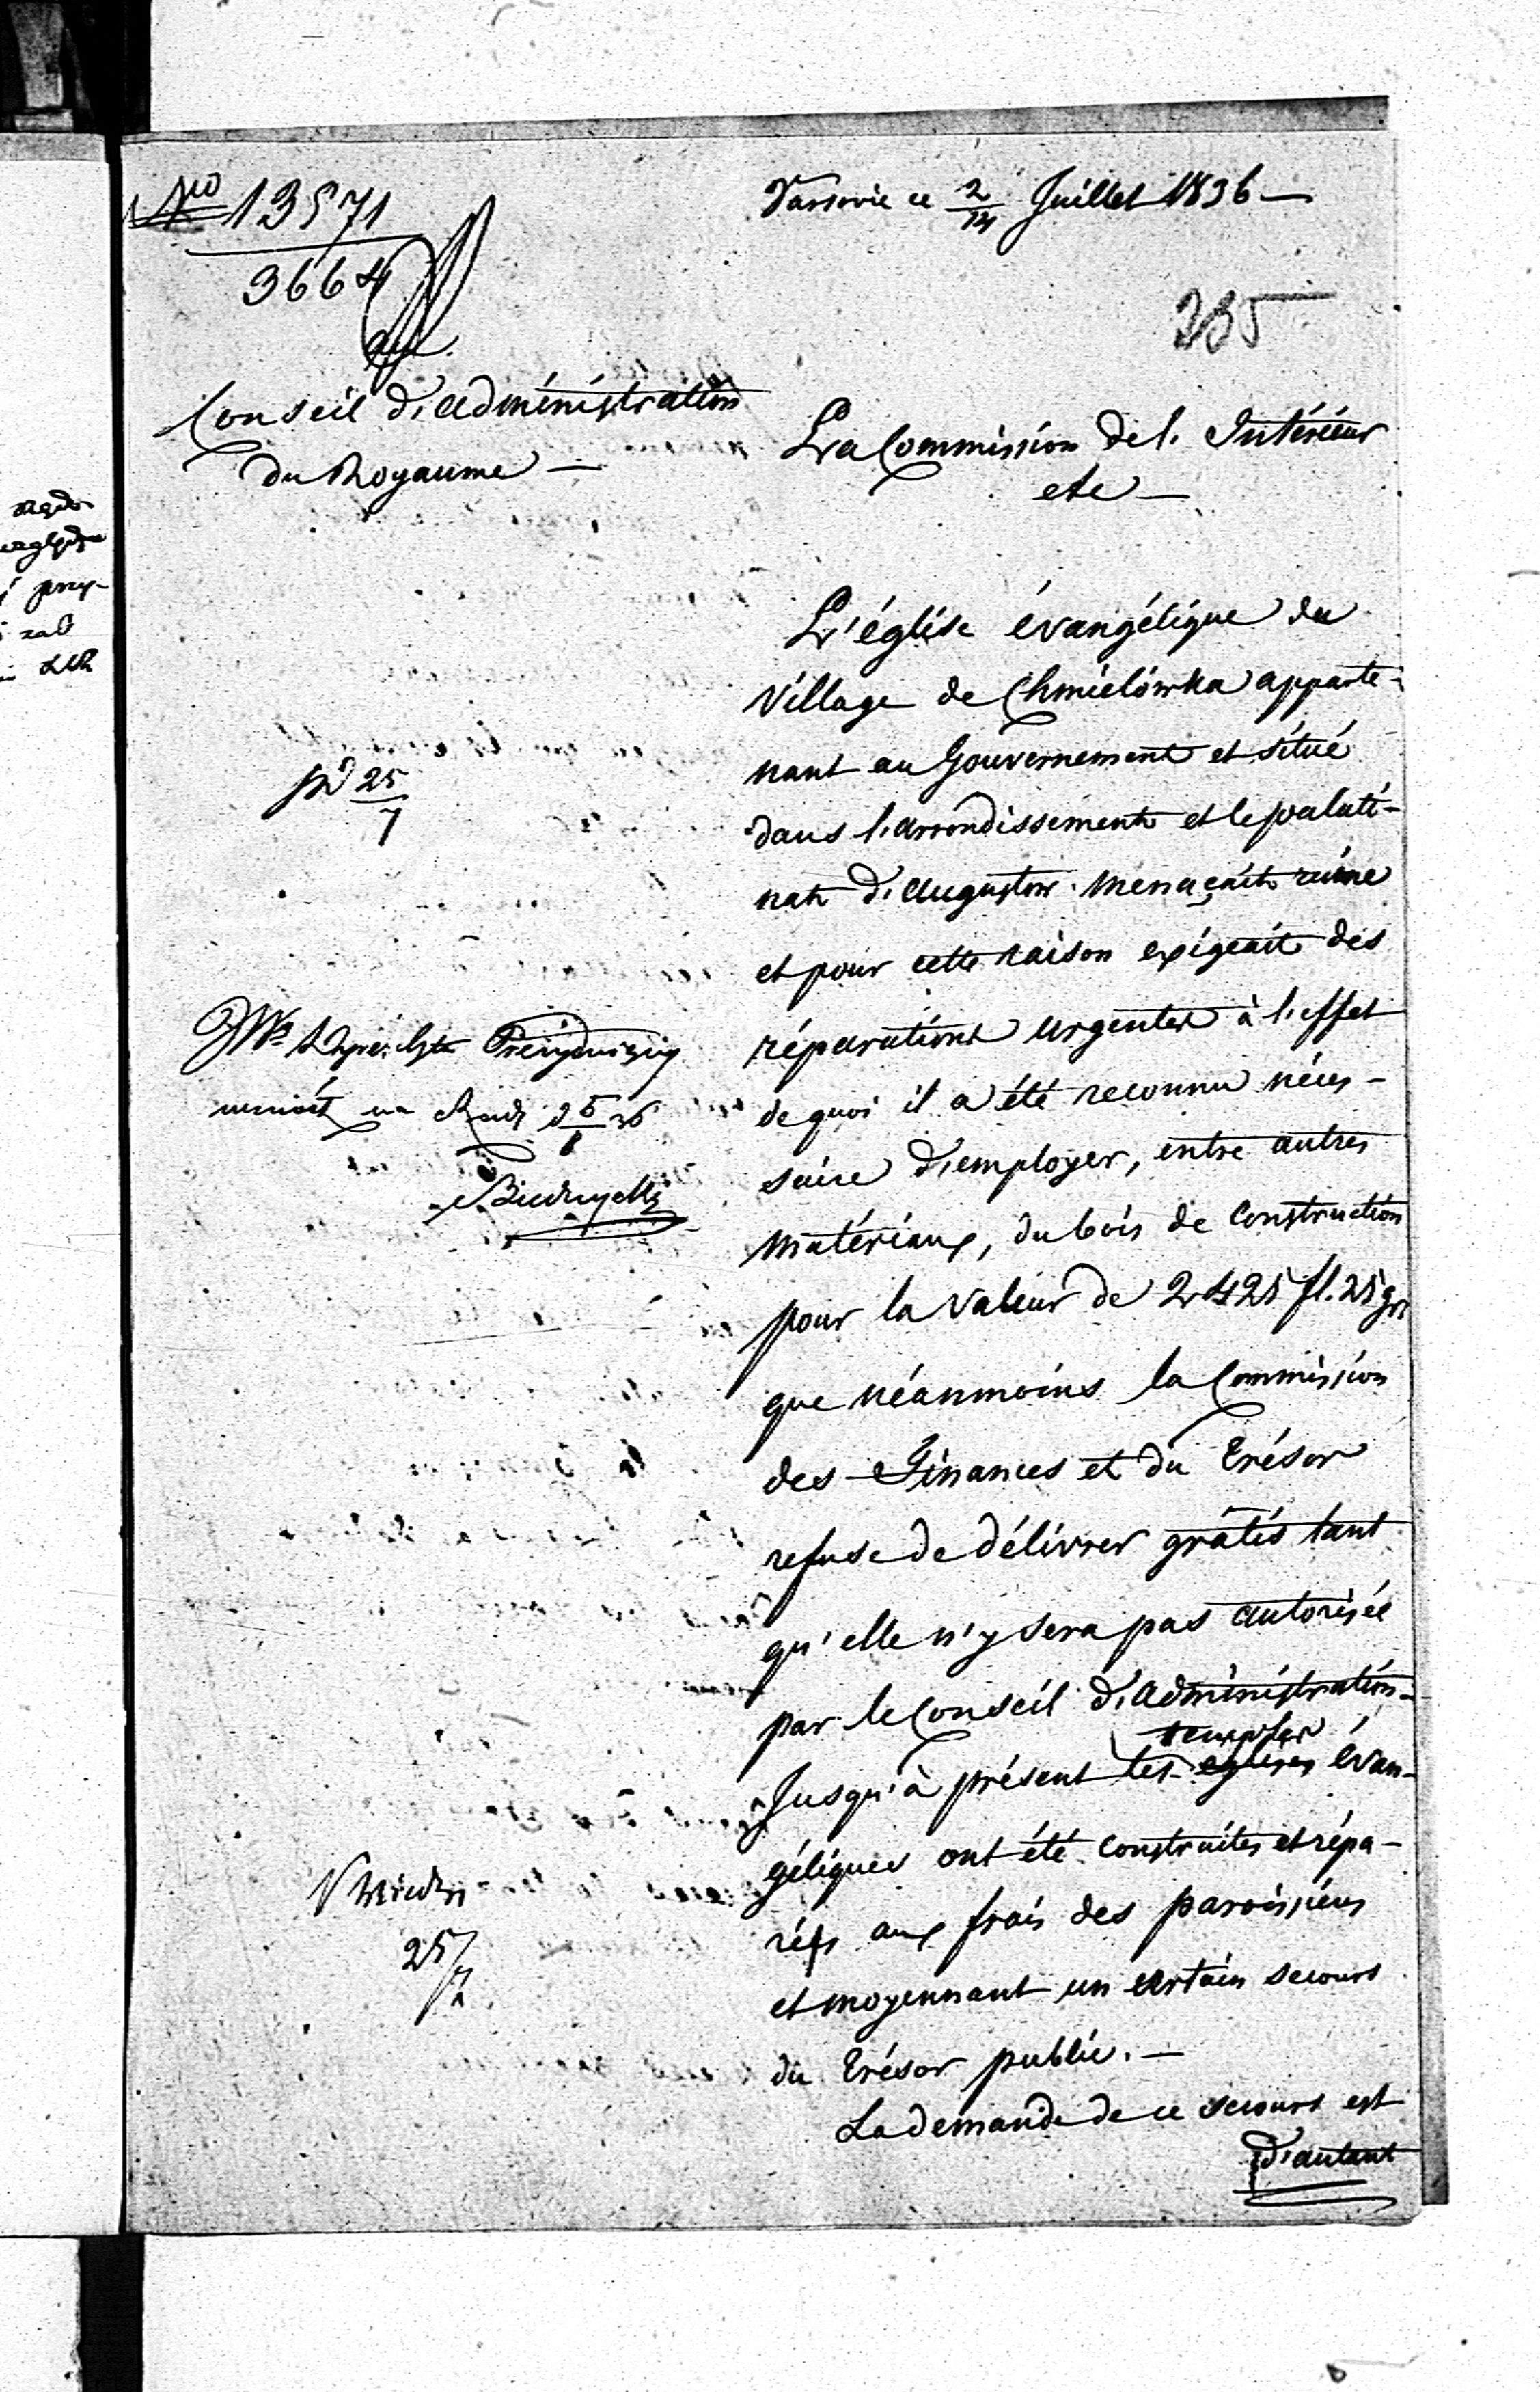 No 13571
3664
Varsovie ce 2/14 Juillet 1836 —
235
Conseil d'administration
du Royaume —
La Commission de l'Intérieur
etc —
L'église évangélique du
Village de Chmielówka apparte-
nant au Gouvernement et situé
dans l'arrondissement et le palati-
nat d'Augustow menaçait ruine
et pour cette raison exigeait des
réparations urgentes à l'effet
de quoi il a été reconnu néces-
saire d'employer, entre autres
matériaux, du bois de construction
pour la valeur de 2425 fl. 25 gr
que néanmoins la Commission
des Finances et du Trésor
refuse de délivrer gratis tant
qu'elle n'y sera pas autorisée
par le Conseil d'administration.
temples
Jusqu'à présent les églises évan-
géliques ont été construites et répa-
rés aux frais des paroissiens
et moyennant un certain secours
du Trésor public. —
La demande de ce secours est
d'autant
25/7
25/7